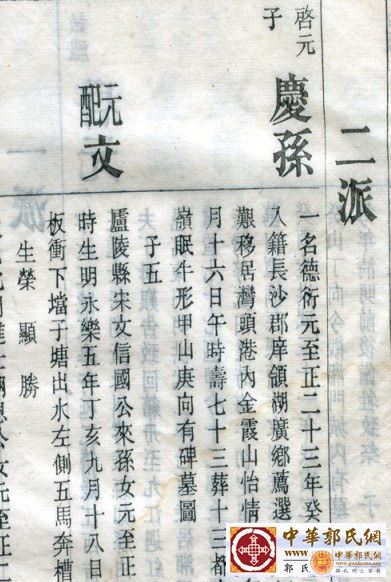 二派
啓元
子
慶孫
一名德衍元至正二十三年癸
入籍長沙郡庠領湖廣鄉薦選
艱移居灣頭港內金霞山怡情
月十六日午時壽七十三葬十三都
嶺眠牛形甲山庚向有碑墓圖
子五
元配
文
廬陵縣宋文信國公來孫女元至正
時生明永樂五年丁亥九月十八日
板衝下壋子塘出水左側五馬奔槽
生榮 顯 勝
中華郭氏網